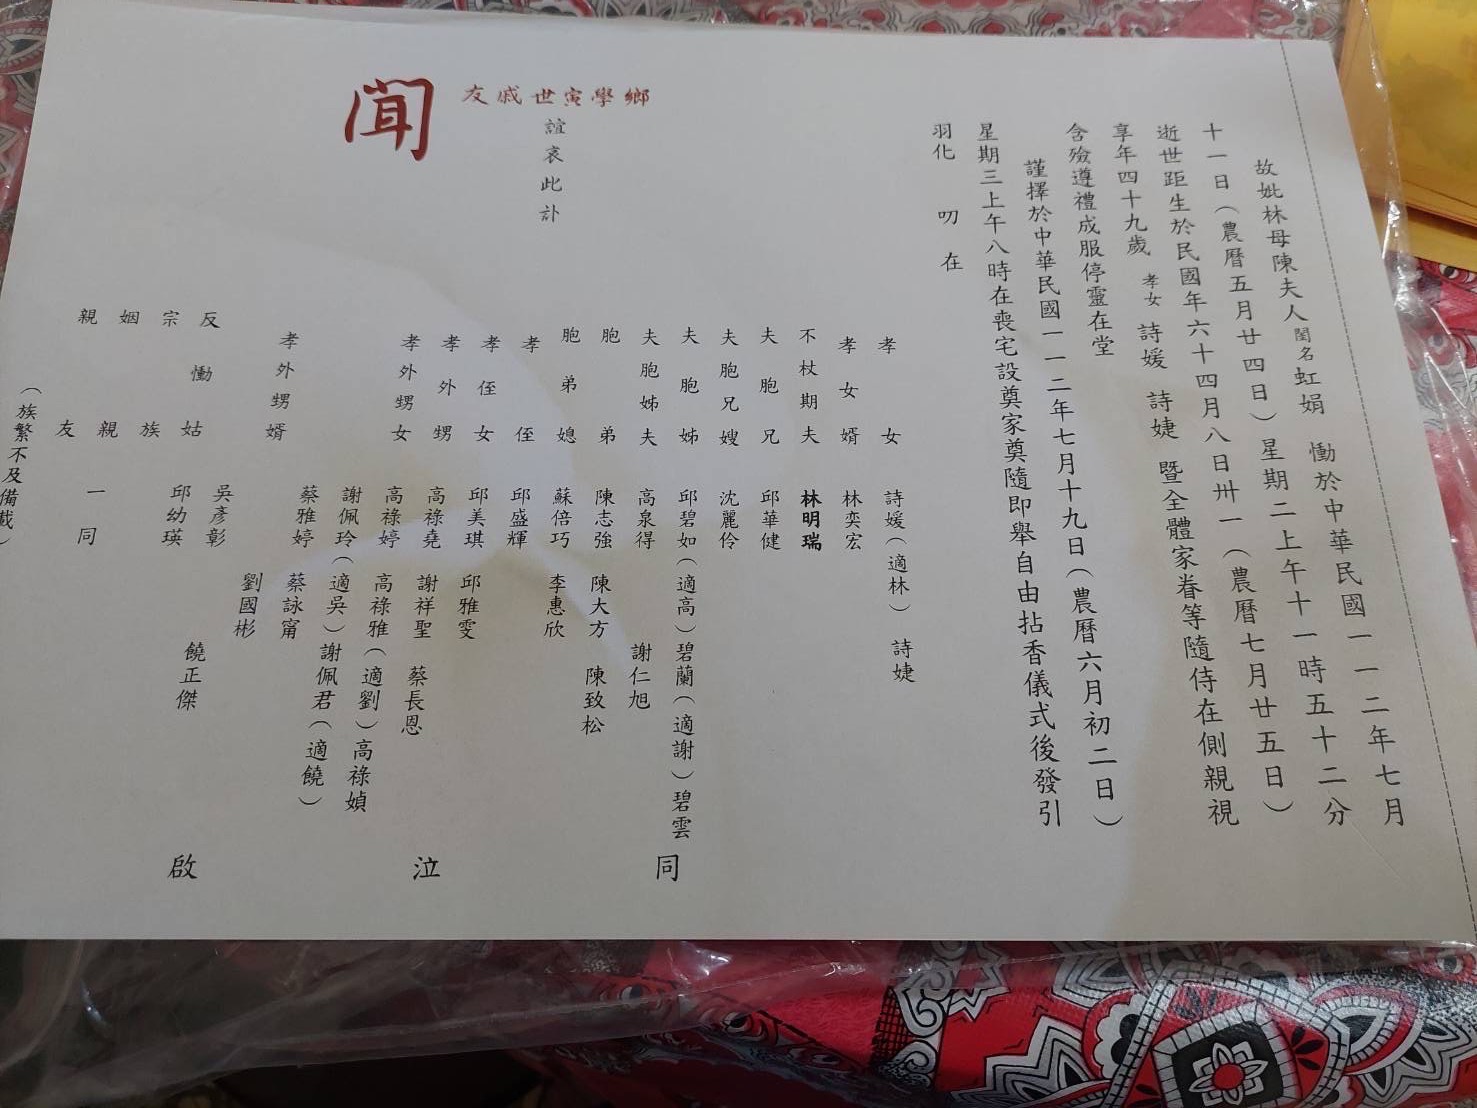 故妣林母陳夫人閨名虹娟　慟於中華民國一一二年七月
十一日（農曆五月廿四日）星期二上午十一時五十二分
逝世距生於民國年六十四月八日卅一（農曆七月廿五日）
享年四十九歲　孝女　詩媛　詩婕　暨全體家眷等隨侍在側親視
含殮遵禮成服停靈在堂
謹擇於中華民國一一二年七月十九日（農曆六月初二日）
星期三上午八時在喪宅設奠家奠隨即舉自由拈香儀式後發引
羽化　叨在
鄉學寅世戚友
誼哀此訃
聞
孝女　詩媛（適林）　詩婕
孝女婿　林奕宏
不杖期夫　林明瑞
夫胞兄　邱華健
夫胞兄嫂　沈麗伶
夫胞姊　邱碧如（適高）碧蘭（適謝）碧雲
夫胞姊夫　高泉得　謝仁旭
胞弟　陳志強　陳大方　陳致松
胞弟媳　蘇倍巧　李惠欣
孝侄　邱盛輝
孝侄女　邱美琪　邱雅雯
孝外甥　高祿堯　謝祥聖　蔡長恩
孝外甥女　高祿婷　高祿雅（適劉）高祿媜
謝佩玲（適吳）謝佩君（適饒）
蔡雅婷　蔡詠甯
孝外甥婿　劉國彬
吳彥彰　饒正傑
反慟姑　邱幼瑛
宗族
姻親　一同
親友
（族繁不及備載）
同泣啟